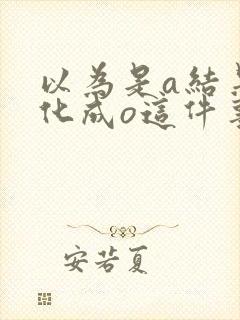 以為是a結
化成o這件
安若夏